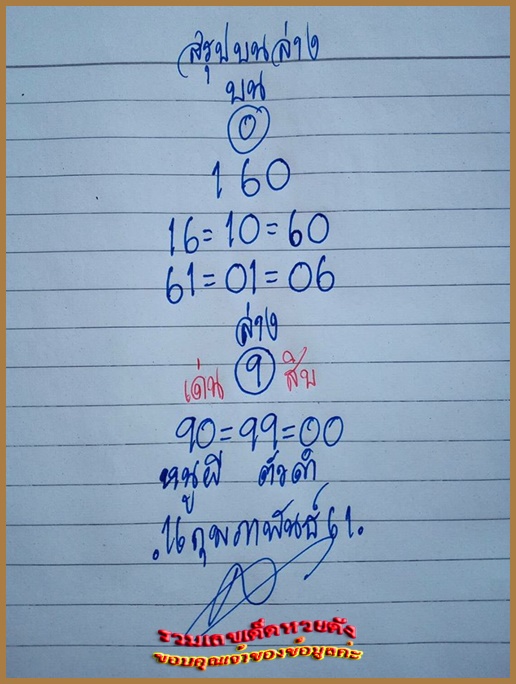 สรุปบนล่าง
บน
0
160
16=10=60
61=01=06
ล่าง
เด่น 9 สิบ
90=99=00
หนูผี ตัวดำ
กุมภาพันธ์ 61.
รวมเลขเด็ดหวยดัง
ขอบคุณเจ้าของข้อมูลค่ะ